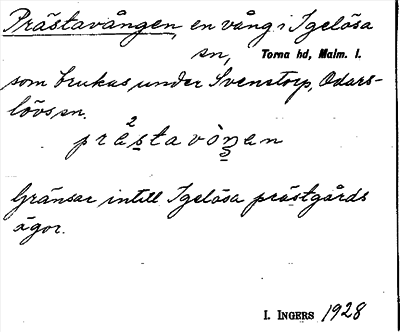 Prästavången, en vång i Igelösa
sn, Torna hd, Malm. l.
som brukas under Svenstorp, Odars-
lövs sn.
prä²stavòṉen
Gränsar intill Igelösa prästgårds
ägor.
I. INGERS 1928